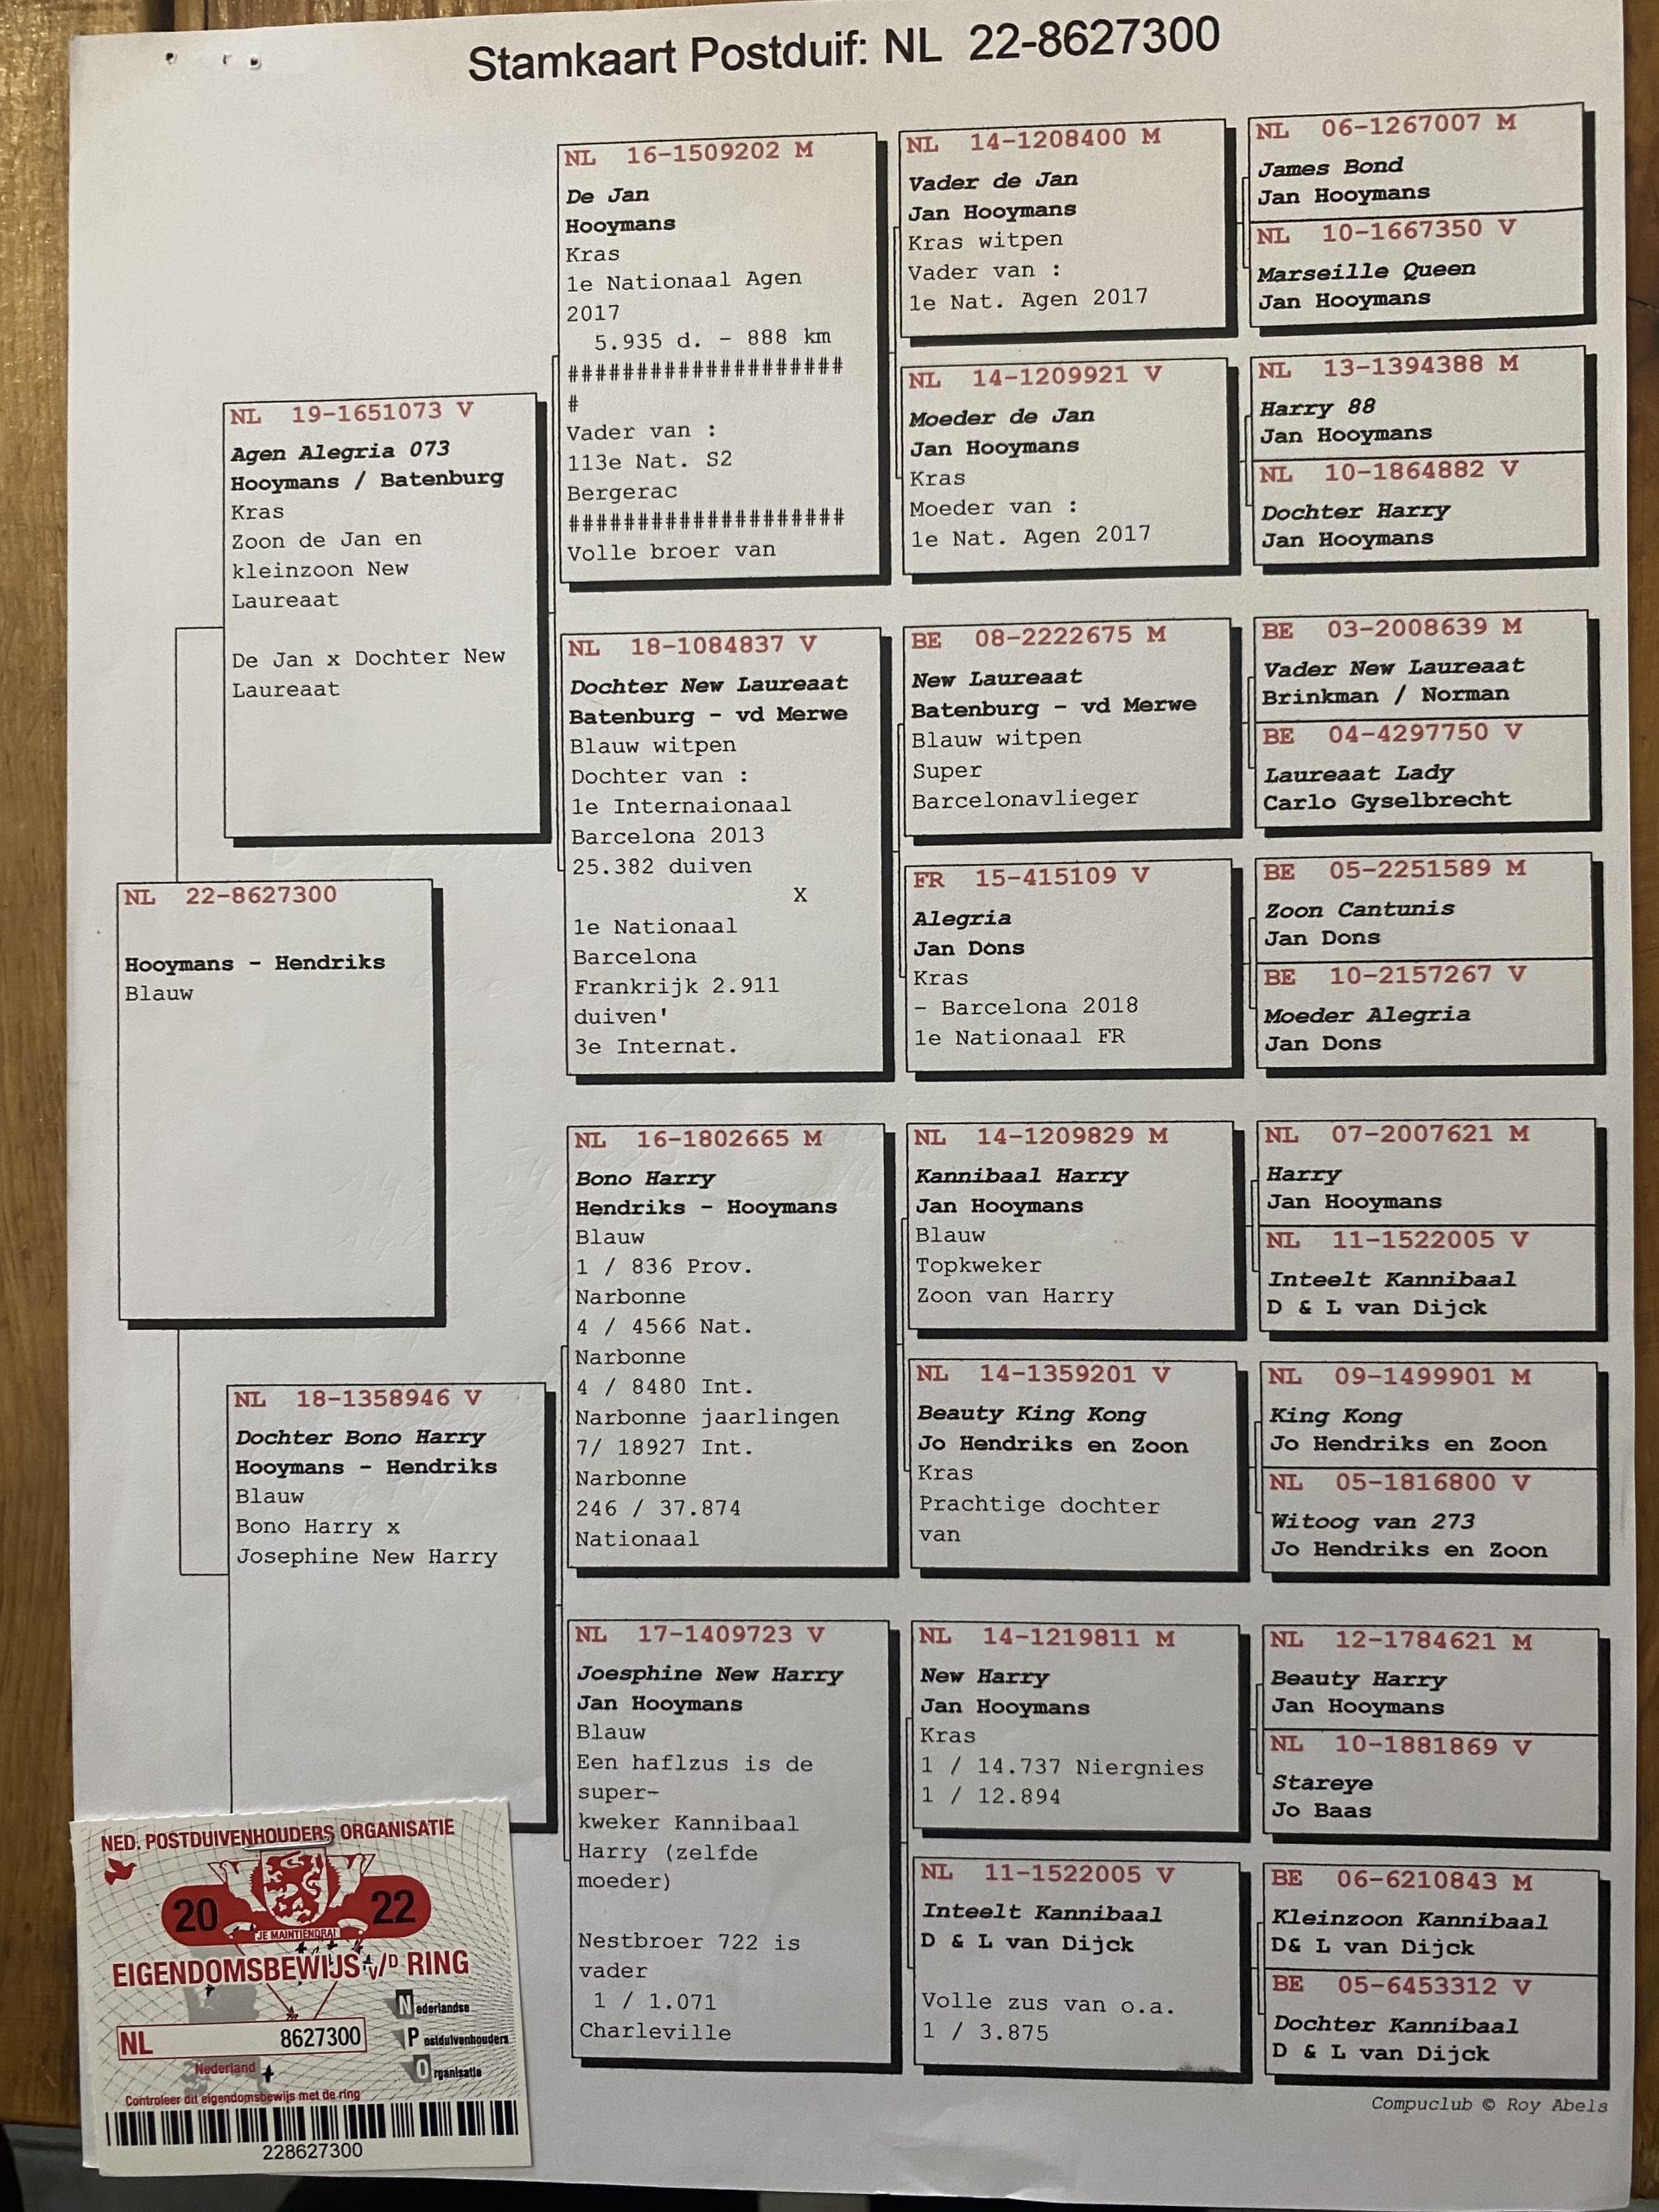 Stamkaart Postduif: NL 22-8627300
NL 22-8627300
Hooymans - Hendriks
Blauw
NL 19-1651073 V
Agen Alegria 073
Hooymans / Batenburg
Kras
Zoon de Jan en
kleinzoon New
Laureaat
De Jan x Dochter New
Laureaat
NL 18-1358946 V
Dochter Bono Harry
Hooymans - Hendriks
Blauw
Bono Harry x
Josephine New Harry
NL 16-1509202 M
De Jan
Hooymans
Kras
1e Nationaal Agen
2017
5.935 d. - 888 km
####################
#
Vader van :
113e Nat. S2
Bergerac
####################
Volle broer van
NL 18-1084837 V
Dochter New Laureaat
Batenburg - vd Merwe
Blauw witpen
Dochter van :
1e Internaionaal
Barcelona 2013
25.382 duiven
X
1e Nationaal
Barcelona
Frankrijk 2.911
duiven'
3e Internat.
NL 16-1802665 M
Bono Harry
Hendriks - Hooymans
Blauw
1 / 836 Prov.
Narbonne
4 / 4566 Nat.
Narbonne
4 / 8480 Int.
Narbonne jaarlingen
7/ 18927 Int.
Narbonne
246 / 37.874
Nationaal
NL 17-1409723 V
Joesphine New Harry
Jan Hooymans
Blauw
Een haflzus is de
super-
kweker Kannibaal
Harry (zelfde
moeder)
Nestbroer 722 is
vader
1 / 1.071
Charleville
NL 14-1208400 M
Vader de Jan
Jan Hooymans
Kras witpen
Vader van :
1e Nat. Agen 2017
NL 14-1209921 V
Moeder de Jan
Jan Hooymans
Kras
Moeder van :
1e Nat. Agen 2017
BE 08-2222675 M
New Laureaat
Batenburg - vd Merwe
Blauw witpen
Super
Barcelonavlieger
FR 15-415109 V
Alegria
Jan Dons
Kras
- Barcelona 2018
1e Nationaal FR
NL 14-1209829 M
Kannibaal Harry
Jan Hooymans
Blauw
Topkweker
Zoon van Harry
NL 14-1359201 V
Beauty King Kong
Jo Hendriks en Zoon
Kras
Prachtige dochter
van
NL 14-1219811 M
New Harry
Jan Hooymans
Kras
1 / 14.737 Niergnies
1 / 12.894
NL 11-1522005 V
Inteelt Kannibaal
D & L van Dijck
Volle zus van o.a.
1 / 3.875
NL 06-1267007 M
James Bond
Jan Hooymans
NL 10-1667350 V
Marseille Queen
Jan Hooymans
NL 13-1394388 M
Harry 88
Jan Hooymans
NL 10-1864882 V
Dochter Harry
Jan Hooymans
BE 03-2008639 M
Vader New Laureaat
Brinkman / Norman
BE 04-4297750 V
Laureaat Lady
Carlo Gyselbrecht
BE 05-2251589 M
Zoon Cantunis
Jan Dons
BE 10-2157267 V
Moeder Alegria
Jan Dons
NL 07-2007621 M
Harry
Jan Hooymans
NL 11-1522005 V
Inteelt Kannibaal
D & L van Dijck
NL 09-1499901 M
King Kong
Jo Hendriks en Zoon
NL 05-1816800 V
Witoog van 273
Jo Hendriks en Zoon
NL 12-1784621 M
Beauty Harry
Jan Hooymans
NL 10-1881869 V
Stareye
Jo Baas
BE 06-6210843 M
Kleinzoon Kannibaal
D& L van Dijck
BE 05-6453312 V
Dochter Kannibaal
D & L van Dijck
Compuclub © Roy Abels
NED. POSTDUIVENHOUDERS ORGANISATIE
20 22
JE MAINTIENDRAI
EIGENDOMSBEWIJS v/D RING
NL 8627300
Nederland
Nederlandse
Postduivenhouders
Organisatie
Controleer dit eigendomsbewijs met de ring
228627300